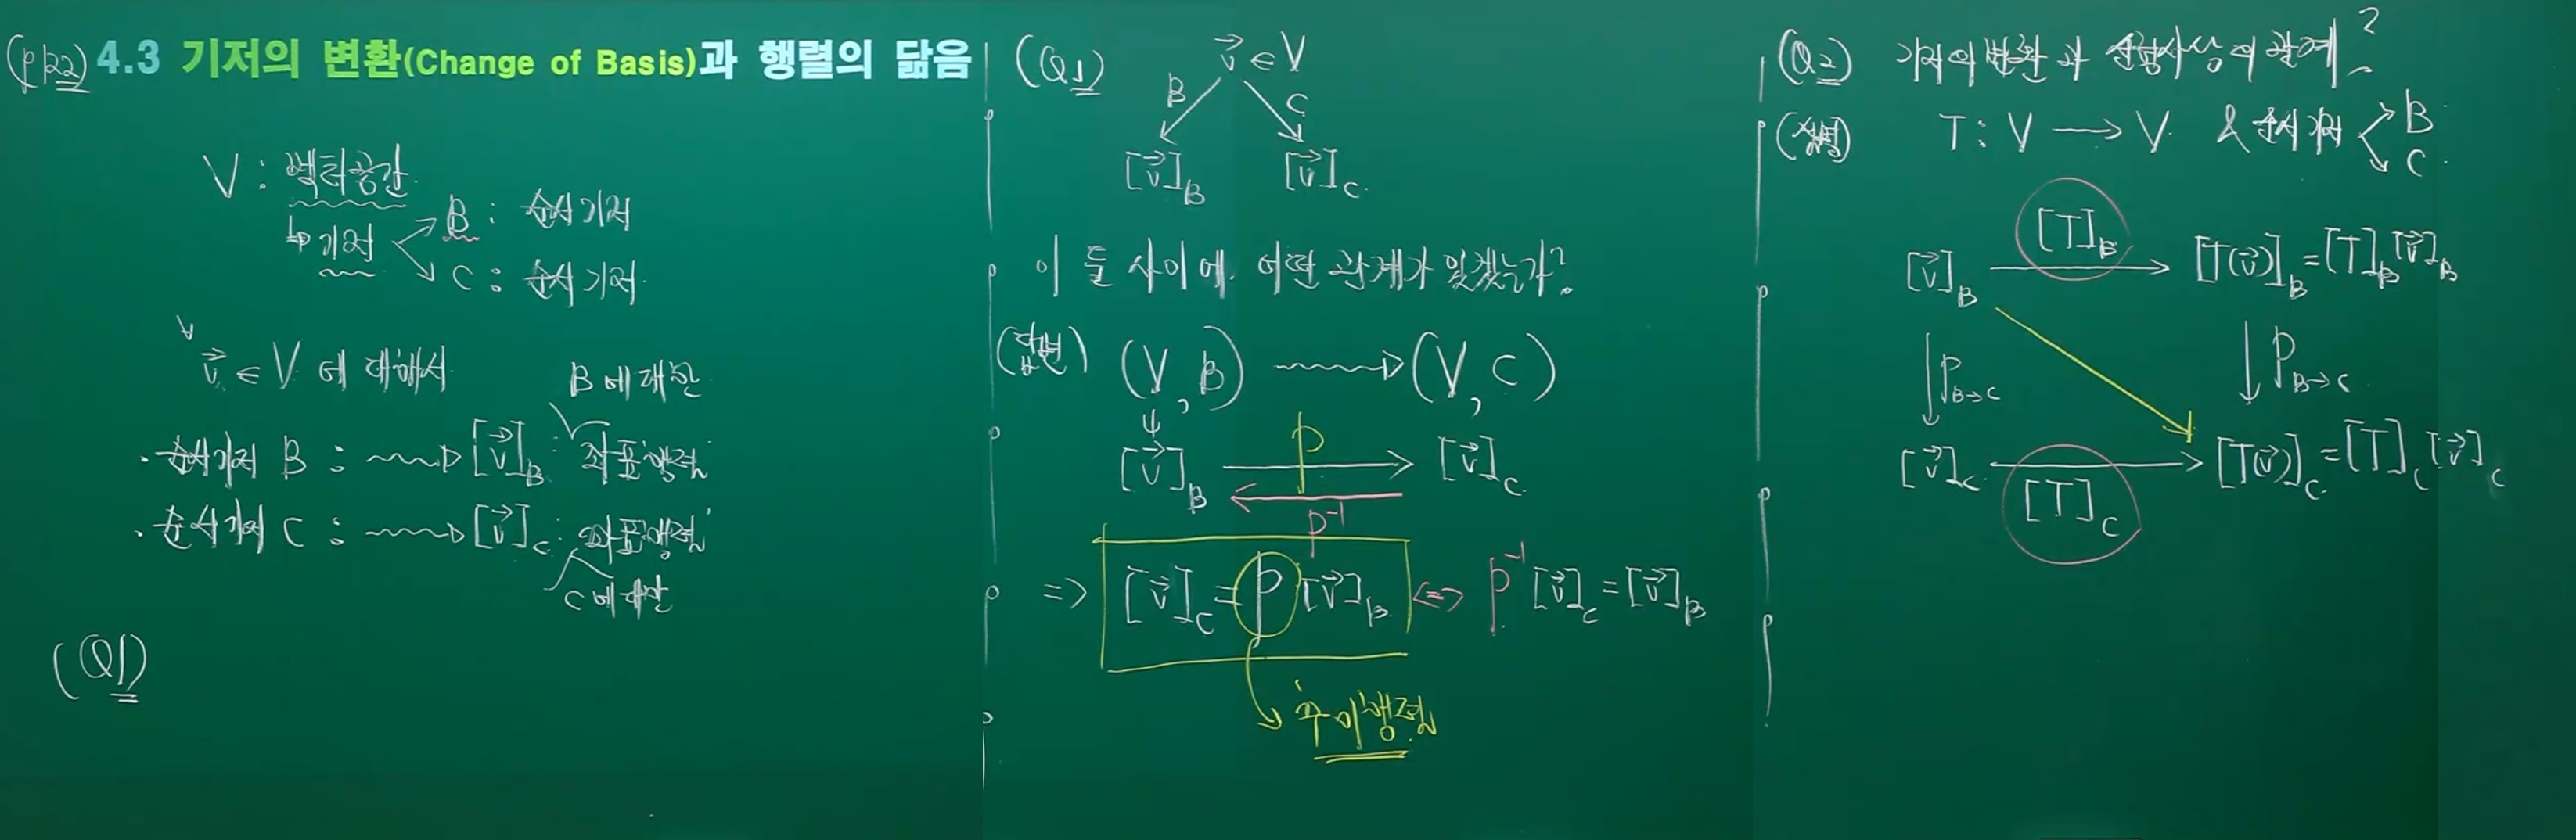 (p122) 4.3 기저의 변환(Change of Basis)과 행렬의 닮음
V : 벡터공간
↳ 기저
B : 순서기저
C : 순서기저
∀v⃗ ∈ V 에 대해서
B에 대한
· 순서기저 B : ⇝ [v⃗]_B : 좌표행렬
· 순서기저 C : ⇝ [v⃗]_C : 좌표행렬
C에 대한
(Q1)
(Q1) v⃗ ∈ V
B C
[v⃗]_B [v⃗]_C
이 둘 사이에 어떤 관계가 있겠는가?
(답변) (V, B) ⇝ (V, C)
[v⃗]_B → [v⃗]_C
P
P⁻¹
⇒ [v⃗]_C = P [v⃗]_B ⇔ P⁻¹ [v⃗]_C = [v⃗]_B
추이행렬
(Q2) 기저의 변환과 선형사상의 관계?
(설명) T : V → V & 순서기저 B C
[T]_B
[v⃗]_B → [T(v⃗)]_B = [T]_B [v⃗]_B
↓ P_B→C ↓ P_B→C
[v⃗]_C → [T(v⃗)]_C = [T]_C [v⃗]_C
[T]_C